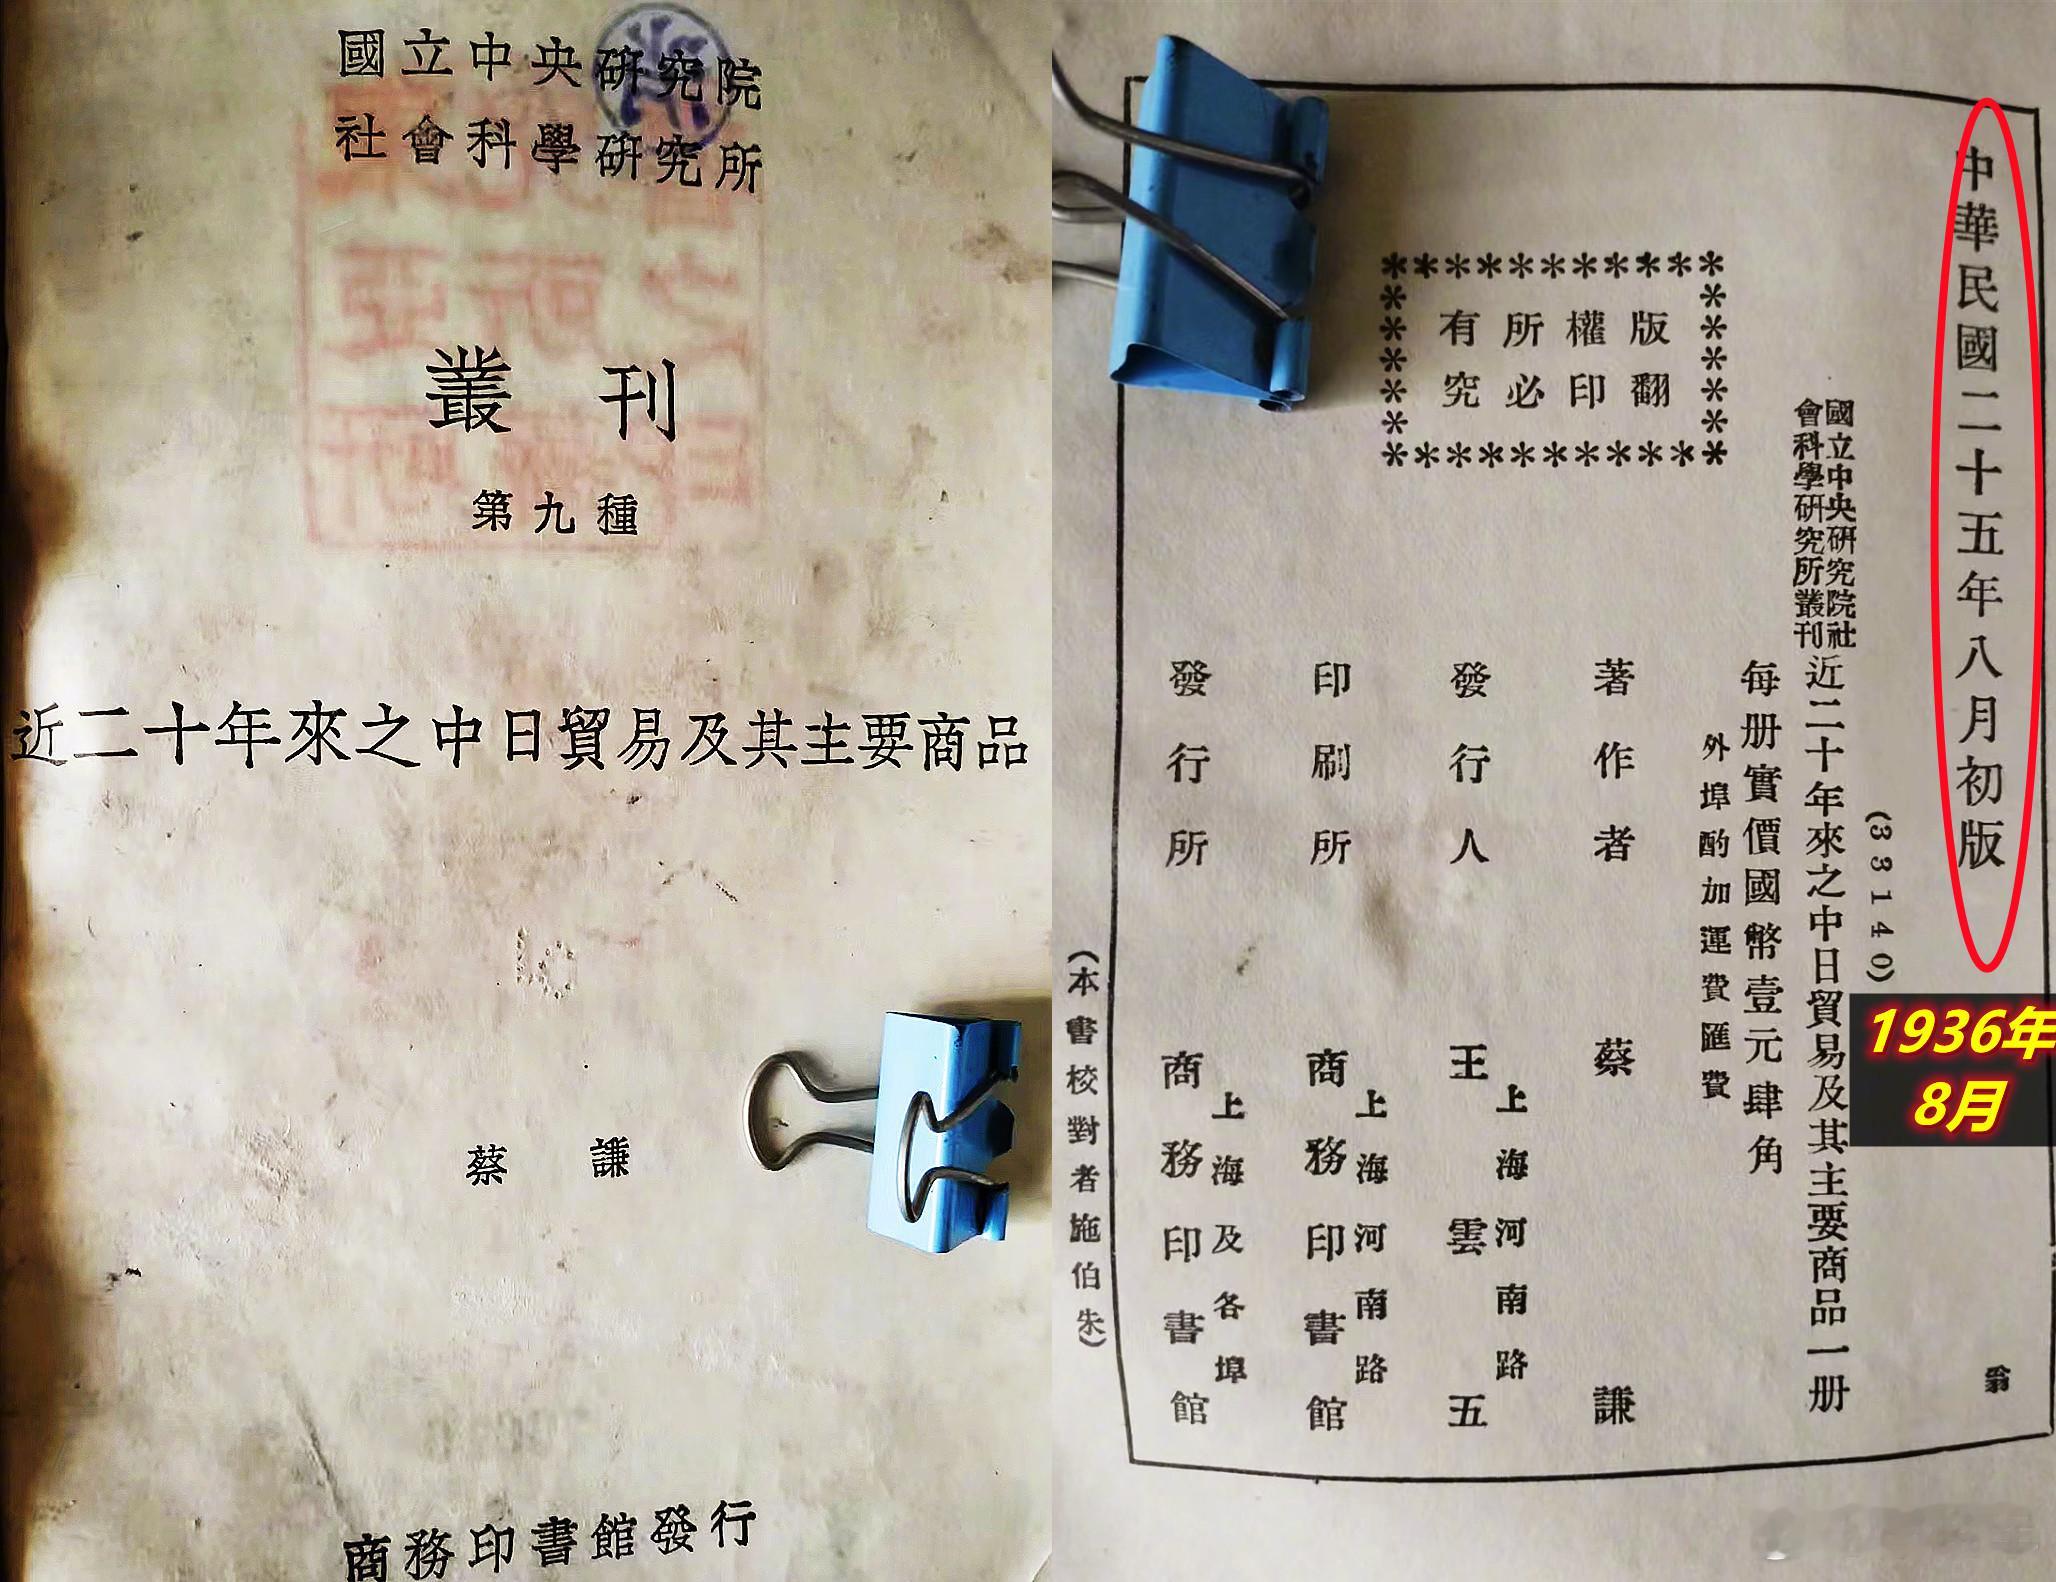 國立中央研究院
社會科學研究所
叢刊
第九種
近二十年來之中日貿易及其主要商品
蔡 謙
商務印書館發行
中華民國二十五年八月初版
(33140)
國立中央研究院社會科學研究所叢刊
近二十年來之中日貿易及其主要商品一册
每册實價國幣壹元肆角
外埠酌加運費匯費
著作者 蔡謙
發行人 王雲五
上海河南路
印刷所 商務印書館
上海河南路
發行所 商務印書館
上海及各埠
版權所有
翻印必究
(本書校對者施伯朱)
翁
1936年
8月